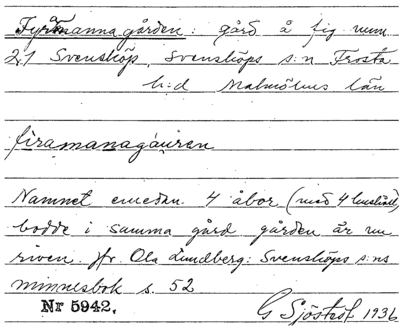 Fyrmannagården: gård å fig num
21 Svensköp, Svensköps s:n Frosta
h:d Malmöhus län
firamanagåuren
Namnet emedan 4 åbor (med 4 hushåll)
bodde i samma gård gården är nu
riven. Jfr. Ola Lundberg: Svensköps s:ns
minnesbok s. 52
Nr 5942.
G Sjöströf 1936